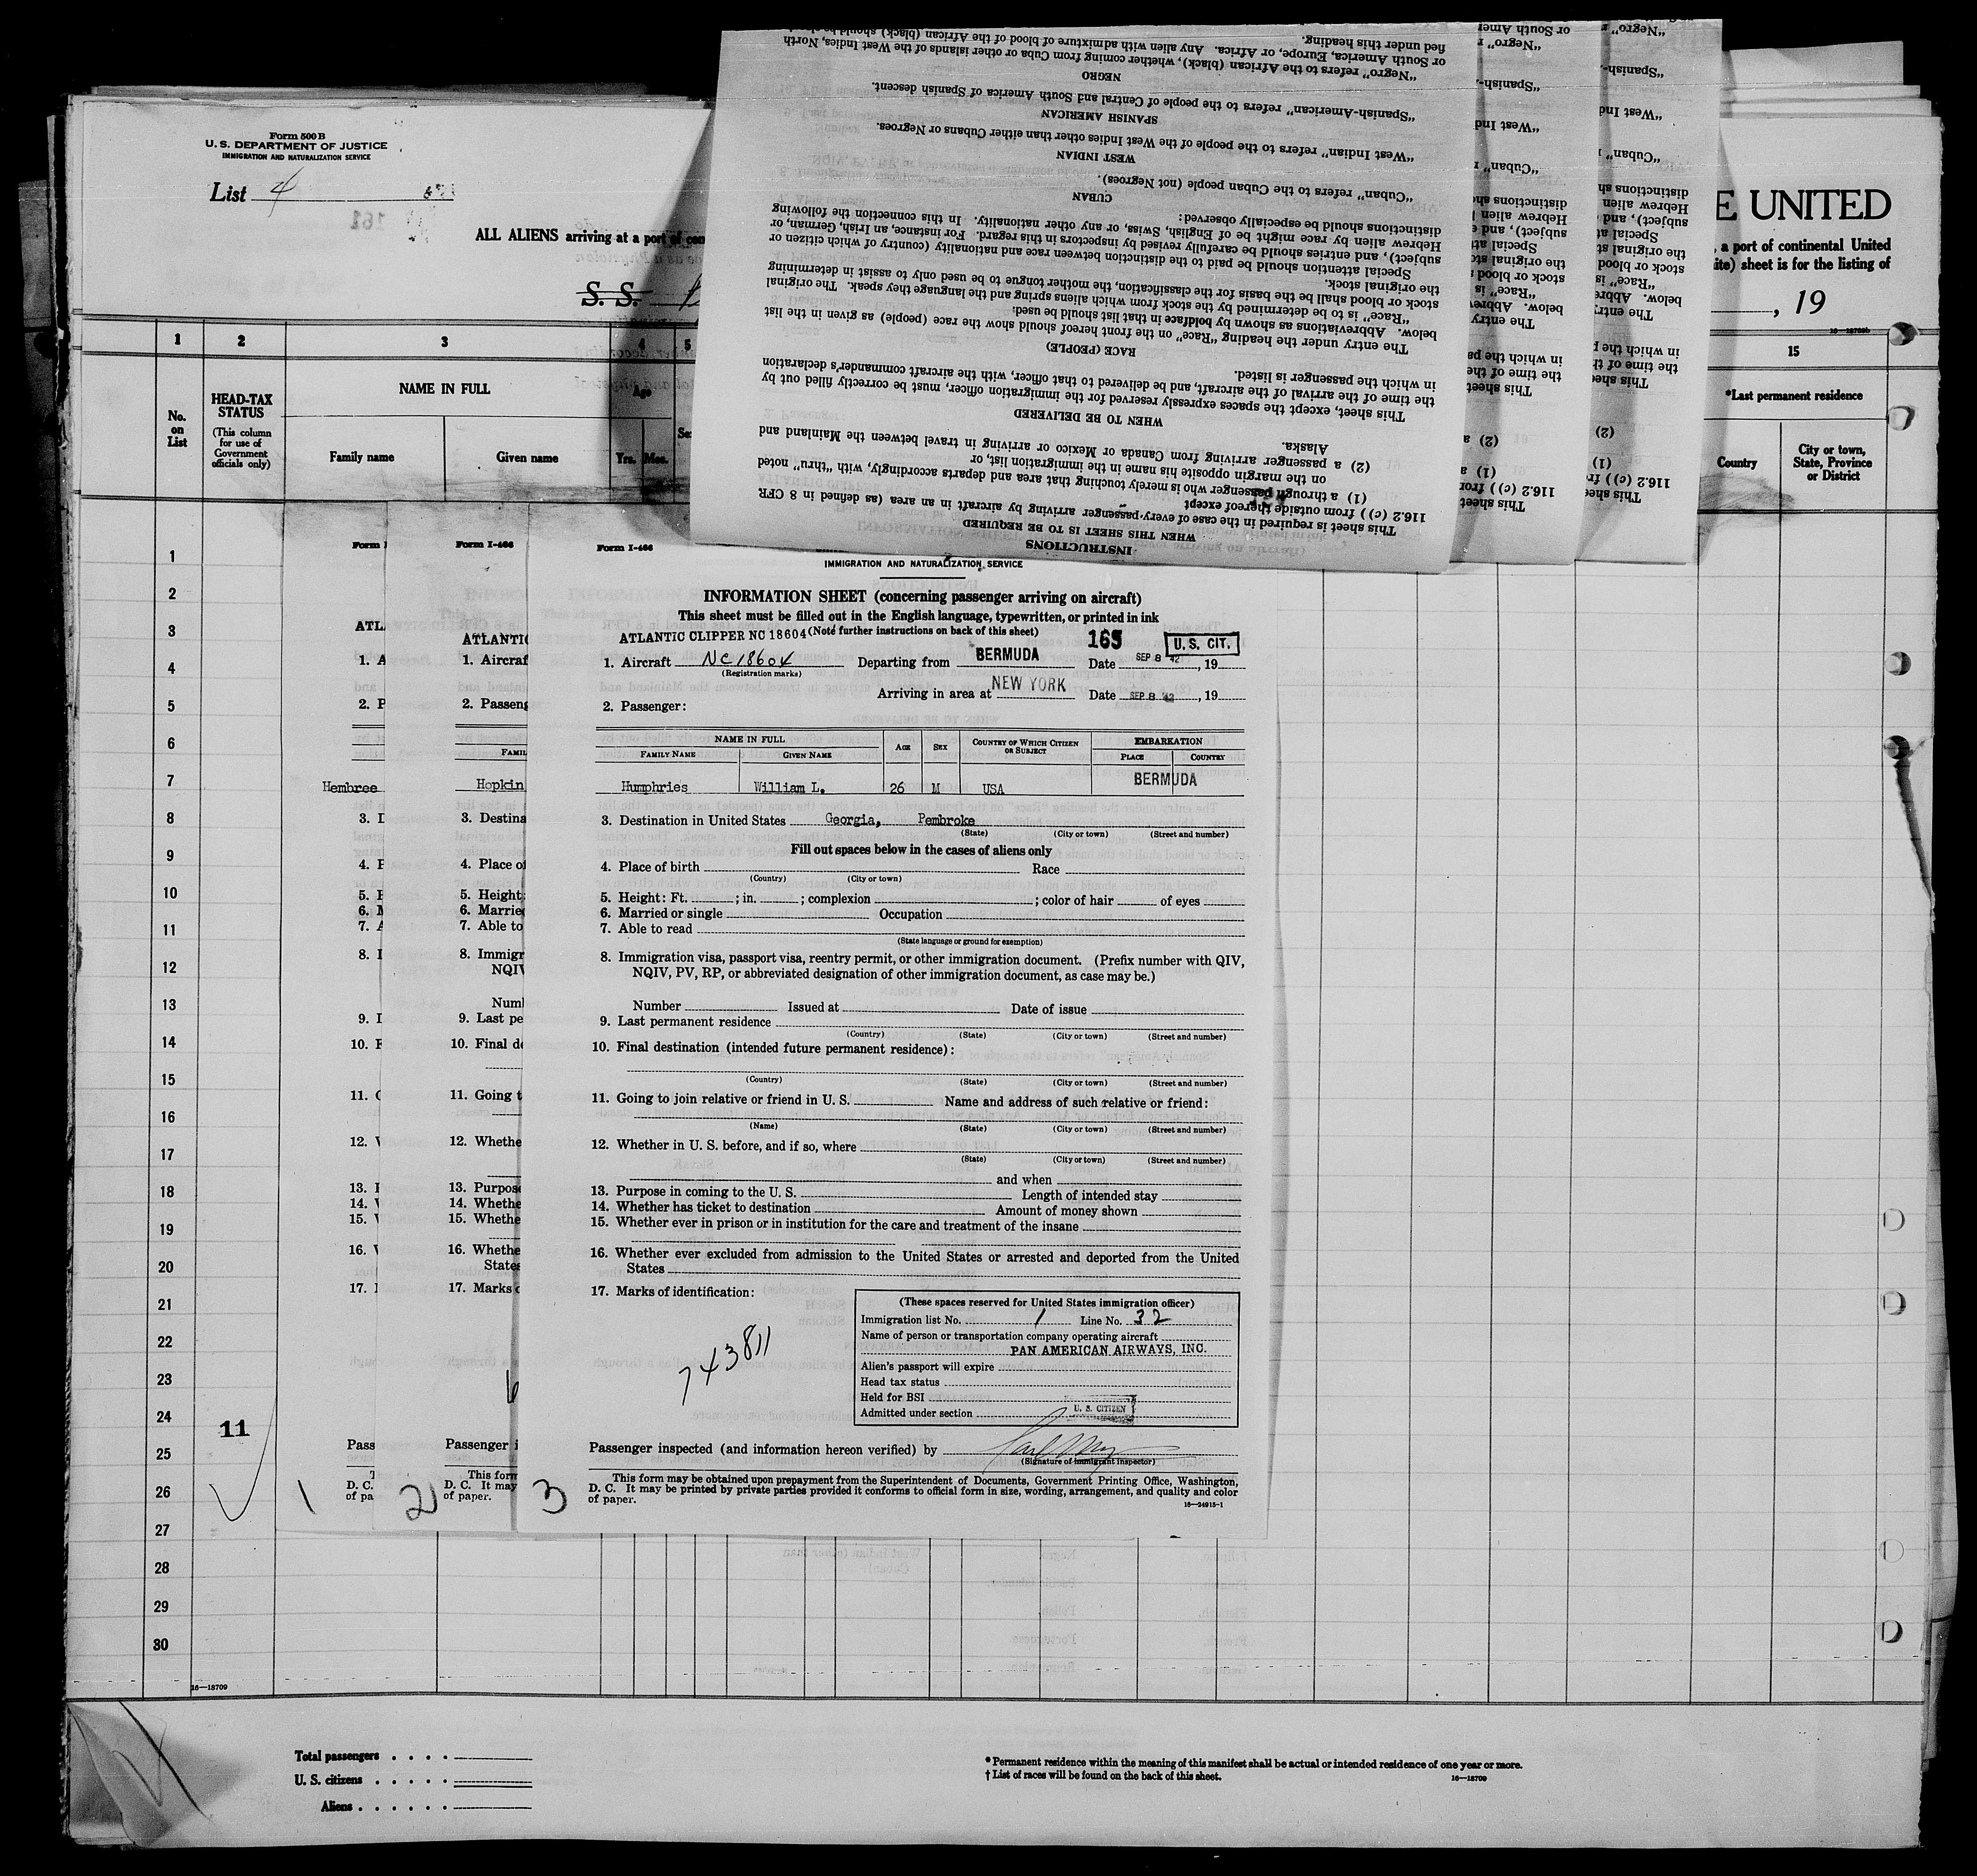 Form 500 B
U. S. DEPARTMENT OF JUSTICE
IMMIGRATION AND NATURALIZATION SERVICE
List 4
ALL ALIENS arriving at a port of con
S. S.
E UNITED
, a port of continental United
ite) sheet is for the listing of
, 19
1 2 3 4 5 15
No. on List
HEAD-TAX STATUS
(This column for use of Government officials only)
NAME IN FULL
Family name Given name
Age
Yrs. Mos.
*Last permanent residence
Country
City or town, State, Province or District
INSTRUCTIONS
WHEN THIS SHEET IS TO BE REQUIRED
This sheet is required in the case of every passenger arriving by aircraft in an area (as defined in 8 CFR
116.2 (c)) from outside thereof except
(1) a through passenger who is merely touching that area and departs accordingly, with "thru" noted
on the margin opposite his name in the immigration list, or
(2) a passenger arriving from Canada or Mexico or arriving in travel between the Mainland and
Alaska.
WHEN TO BE DELIVERED
This sheet, except the spaces expressly reserved for the immigration officer, must be correctly filled out by
the time of the arrival of the aircraft, and be delivered to that officer, with the aircraft commander's declaration
in which the passenger is listed.
RACE (PEOPLE)
The entry under the heading "Race" on the front hereof should show the race (people) as given in the list
below. Abbreviations as shown by boldface in that list should be used:
"Race" is to be determined by the stock from which aliens spring and the language they speak. The original
stock or blood shall be the basis for the classification, the mother tongue to be used only to assist in determining
the original stock.
Special attention should be paid to the distinction between race and nationality (country of which citizen or
subject), and entries should be carefully revised by inspectors in this regard. For instance, an Irish, German, or
Hebrew alien by race might be of English, Swiss, or any other nationality. In this connection the following
distinctions should be especially observed:
CUBAN
"Cuban" refers to the Cuban people (not Negroes).
WEST INDIAN
"West Indian" refers to the people of the West Indies other than either Cubans or Negroes.
SPANISH AMERICAN
"Spanish-American" refers to the people of Central and South America of Spanish descent.
NEGRO
"Negro" refers to the African (black), whether coming from Cuba or other islands of the West Indies, North
or South America, Europe, or Africa. Any alien with admixture of blood of the African (black) should be
fied under this heading.
Form I-466
IMMIGRATION AND NATURALIZATION SERVICE
INFORMATION SHEET (concerning passenger arriving on aircraft)
This sheet must be filled out in the English language, typewritten, or printed in ink
ATLANTIC CLIPPER NC 18604 (Note further instructions on back of this sheet) 165 U. S. CIT.
1. Aircraft NC18604 Departing from BERMUDA Date SEP 8 '42, 19
(Registration marks)
Arriving in area at NEW YORK Date SEP 8 42, 19
2. Passenger:
NAME IN FULL AGE SEX COUNTRY OF WHICH CITIZEN OR SUBJECT EMBARKATION
FAMILY NAME GIVEN NAME PLACE COUNTRY
Humphries William L. 26 M USA BERMUDA
3. Destination in United States Georgia, Pembroke
(State) (City or town) (Street and number)
Fill out spaces below in the cases of aliens only
4. Place of birth Race
(Country) (City or town)
5. Height: Ft. ; in. ; complexion ; color of hair of eyes
6. Married or single Occupation
7. Able to read
(State language or ground for exemption)
8. Immigration visa, passport visa, reentry permit, or other immigration document. (Prefix number with QIV,
NQIV, PV, RP, or abbreviated designation of other immigration document, as case may be.)
Number Issued at Date of issue
9. Last permanent residence
(Country) (State) (City or town) (Street and number)
10. Final destination (intended future permanent residence):
(Country) (State) (City or town) (Street and number)
11. Going to join relative or friend in U. S. Name and address of such relative or friend:
(Name) (State) (City or town) (Street and number)
12. Whether in U. S. before, and if so, where
(State) (City or town) (Street and number)
and when
13. Purpose in coming to the U. S. Length of intended stay
14. Whether has ticket to destination Amount of money shown
15. Whether ever in prison or in institution for the care and treatment of the insane
16. Whether ever excluded from admission to the United States or arrested and deported from the United
States
17. Marks of identification:
743811
(These spaces reserved for United States immigration officer)
Immigration list No. 1 Line No. 32
Name of person or transportation company operating aircraft
PAN AMERICAN AIRWAYS, INC.
Alien's passport will expire
Head tax status
Held for BSI
Admitted under section U. S. CITIZEN
Passenger inspected (and information hereon verified) by
(Signature of immigrant inspector)
This form may be obtained upon prepayment from the Superintendent of Documents, Government Printing Office, Washington,
D. C. It may be printed by private parties provided it conforms to official form in size, wording, arrangement, and quality and color
of paper.
16—24915-1
Hembree
Hopkin
11
1 2 3
16—18709
Total passengers
U. S. citizens
Aliens
* Permanent residence within the meaning of this manifest shall be actual or intended residence of one year or more.
† List of races will be found on the back of this sheet.
16—18709